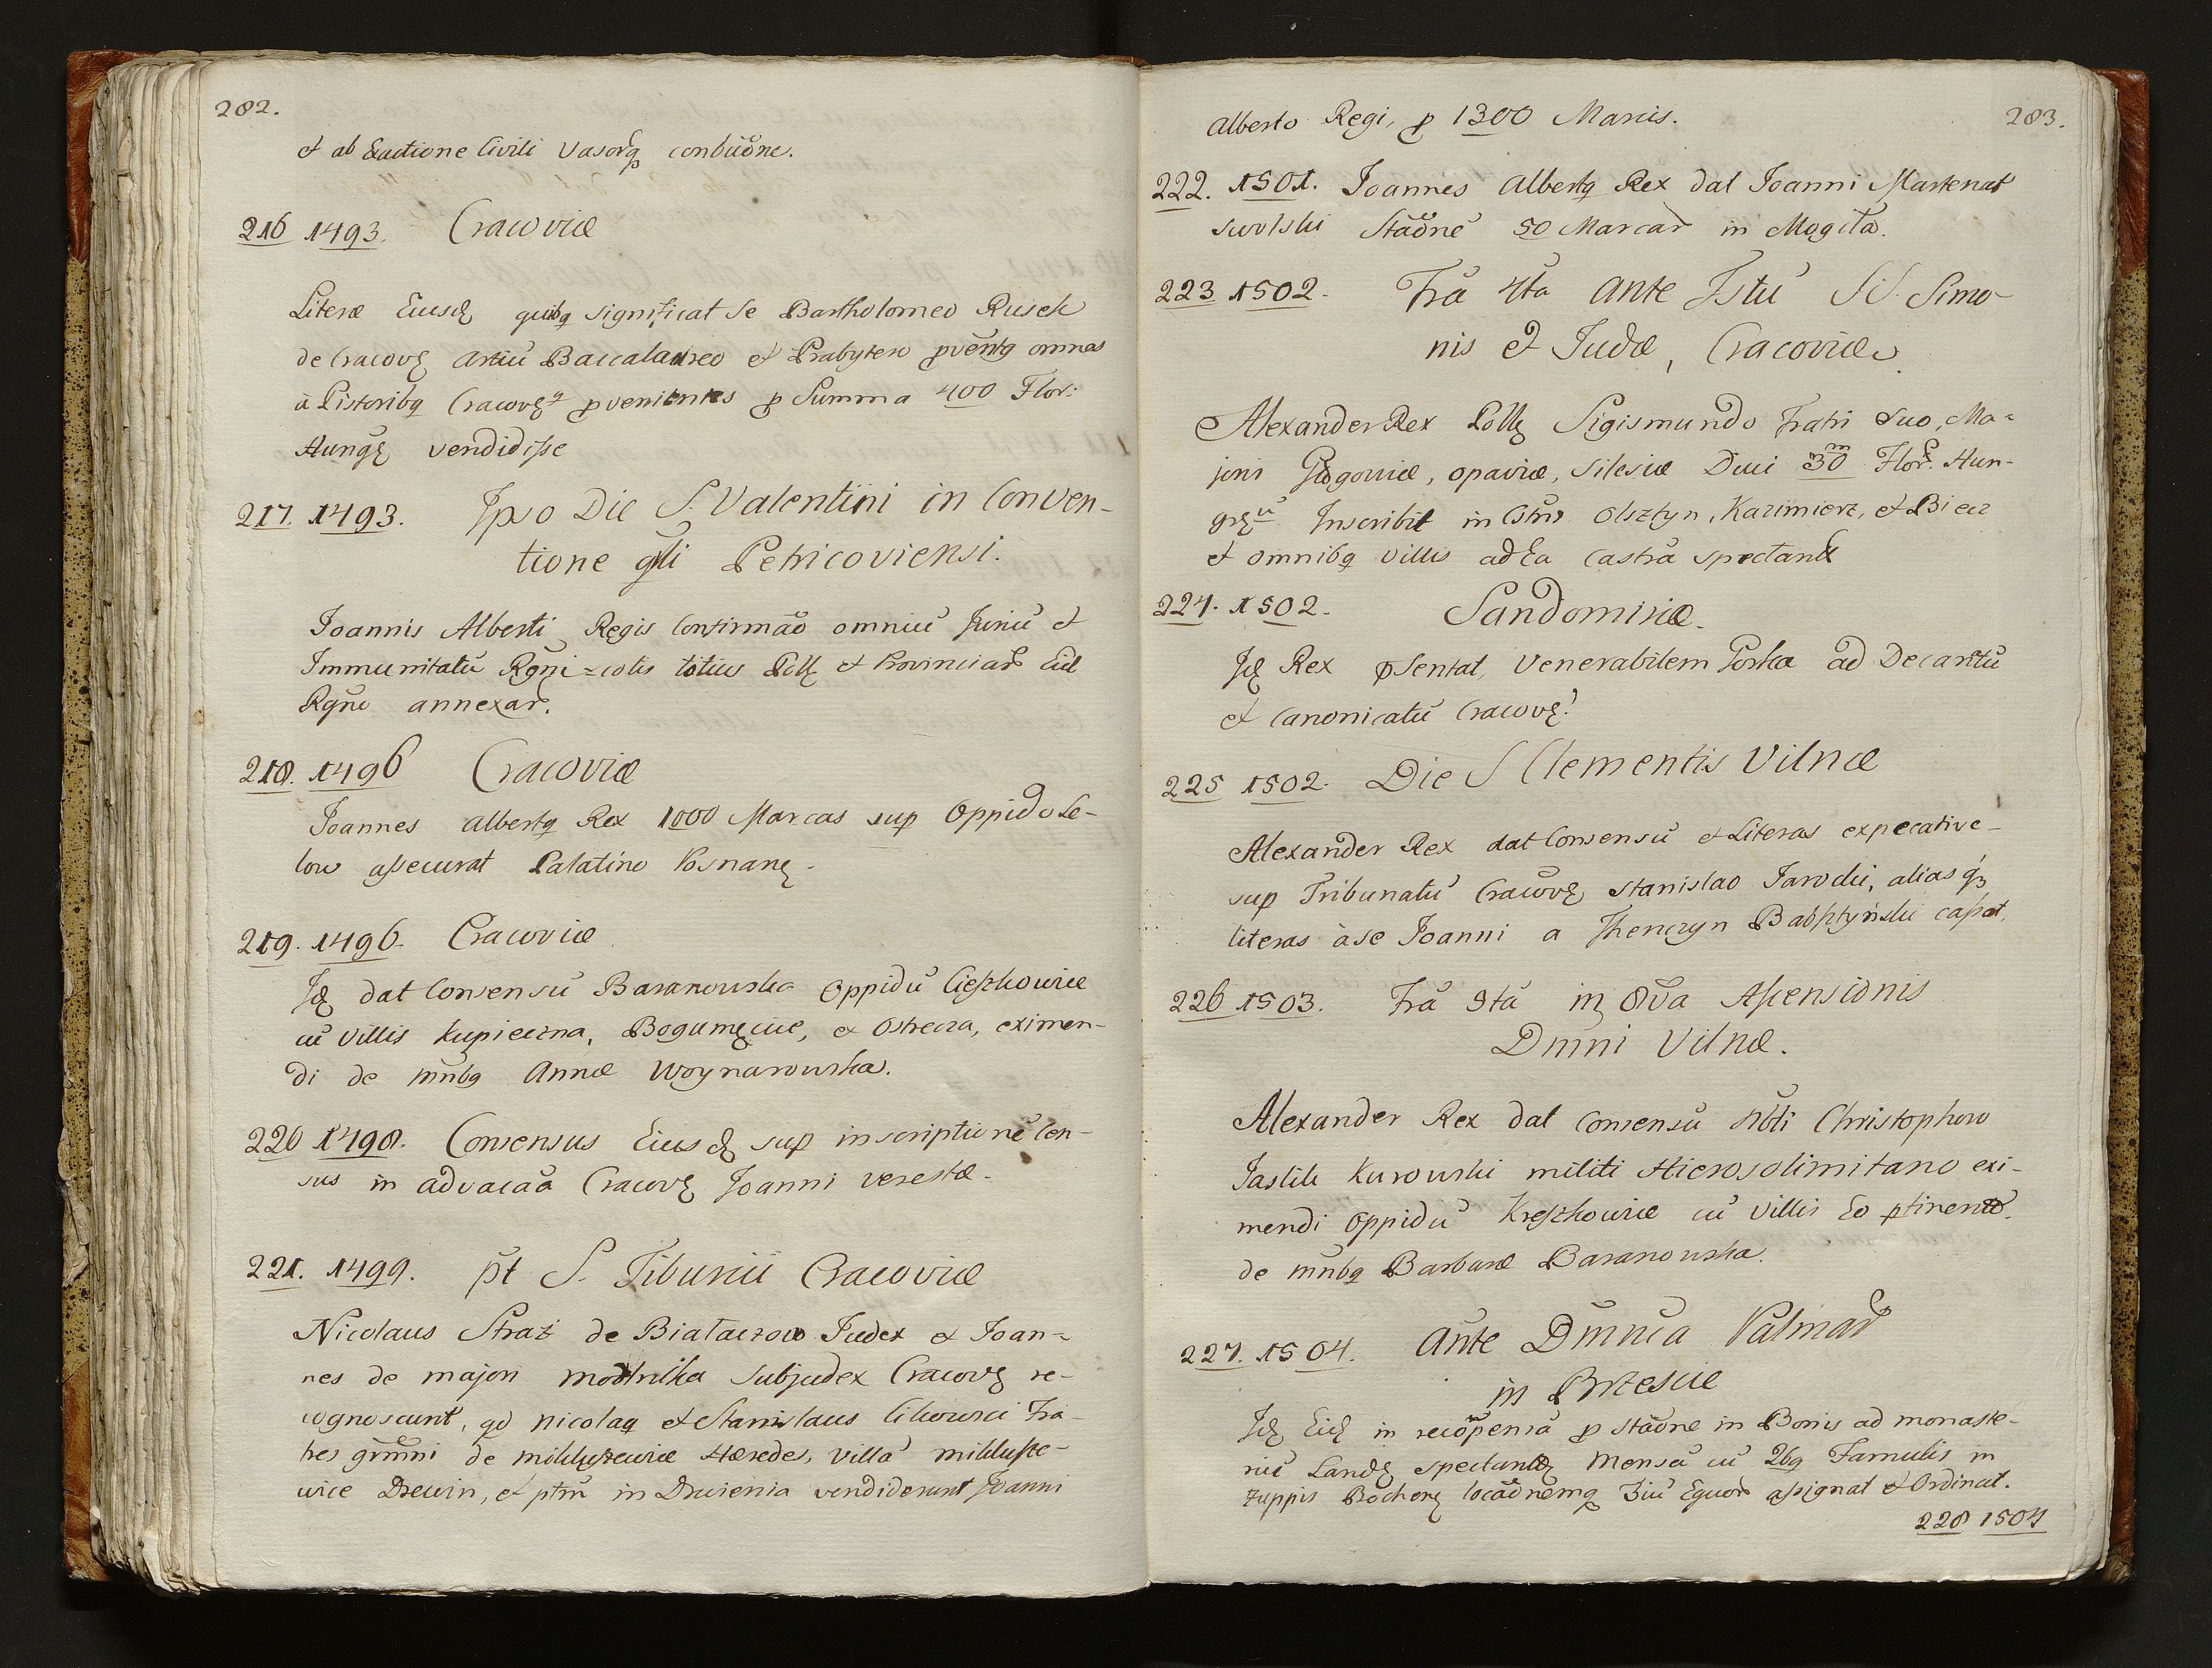 282.
et ab Exactione Civili Vasorq contbuõne.
216 1493. Cracoviæ
Literæ Eiusd quibq significat se Bartholomeo Rusek
de Cracov Artiũ Baccalaureo et Prabytero pventq omnes
à Pistoribq Cracov pvenientes p Summa 400 Flor:
Hung vendidisse
217. 1493. Ipso Die S. Valentini in Conven-
tione gñli Petricoviensi.
Joannis Alberti Regis Confirmaõ omniũ Juriũ et
Immunitatũ Rgni=colis totius Poll et Provinciar Eid
Rgño annexar.
218. 1496 Cracoviæ
Joannes Albertq Rex 1000 Marcas sup Oppido Le-
low assecurat Palatino Posnan.
219. 1496. Cracoviæ
Id dat Consensũ Baranowska Oppidũ Cieszkowice
cũ Villis Kupieczna, Bogumęcice, et Ostrecza, eximen-
di de mñbq Annæ Woynarowska.
220 1498. Consensus Eiusd sup inscriptionẽ Cen-
sus in advacaã Cracov Joanni Verestæ.
221. 1499. pt S. Tiburcii Cracoviæ
Nicolaus Straż de Białaczow Judex et Joan=
nes de majori modrilka Subjudex Cracov re-
cognoscunt, qd Nicolaq et Stanislaus Fra-
tres grmni de Hæredes, villã
wice Drewin, et ptm in Drwienia vendiderunt Joanni
283.
Alberto Regi, p 1300 Marcis.
222. 1501. Joannes Albertq Rex dat Joanni
swolski Staõnẽ 50 Marcar in Mogiła.
223 1502. Frã 4ta ante Fstũ SS. Simo-
nis et Judæ, Cracoviæ.
Alexander Rex Poll Sigismundo Fratri suo, Ma=
joris Glogoviæ, Opaviæ, Silesiæ Duci 30 m Flor. Hun-
gr Inscribit in Cstris Olsztyn, Kazimierz, et Biecz
et omnibq Villis ad Ea Castra spectant
224. 1502. Sandomiriæ.
Id Rex pSentat, Venerabilem Gorka ad Decantũ
et Canonicatũ Cracov:
225 1502. Die S Clementis Vilnæ
Alexander Rex dat Consensũ et Literas expecative-
sup Tribunatũ Cracov Stanislao Jarocki, alias
literas àse Joanni a Thenczyn cassat.
226 1503. Frã 3tã in Ascensionis
Dmni Vilnæ.
Alexander Rex dat Consensũ Nbli Christophoro
Jaslik Kurowski militi Hierosolimitano exi-
mendi Oppidũ Kreszkowice cũ Villis Eo ptinent.
de mñbq Barbaræ Baranowska.
227. 1504. Ante Dmñica Palmar
in Brzescie
Id Eid in recõpensã p staõne in Bonis ad monaste-
riũ Land spectant Mensã cũ 2bq Famulis in
zuppis Bochen Equor assignat et Ordinat.
228 1504